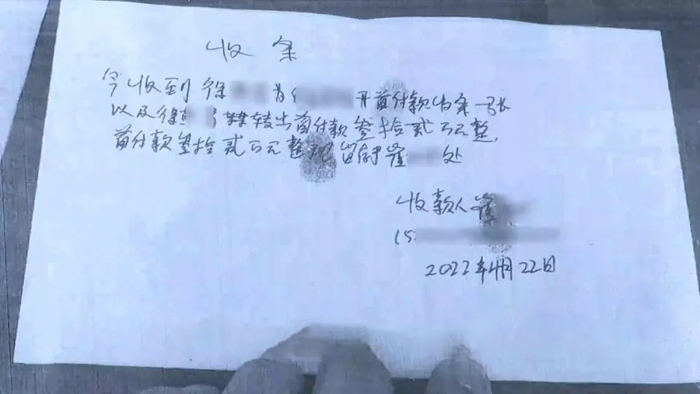 收 条
今收到徐 为 开首付款 条一张
以及徐 转出首付款叁拾贰万元整,
首付款叁拾贰万元整 留 崔 处
收款人崔
15
2022年4月22日